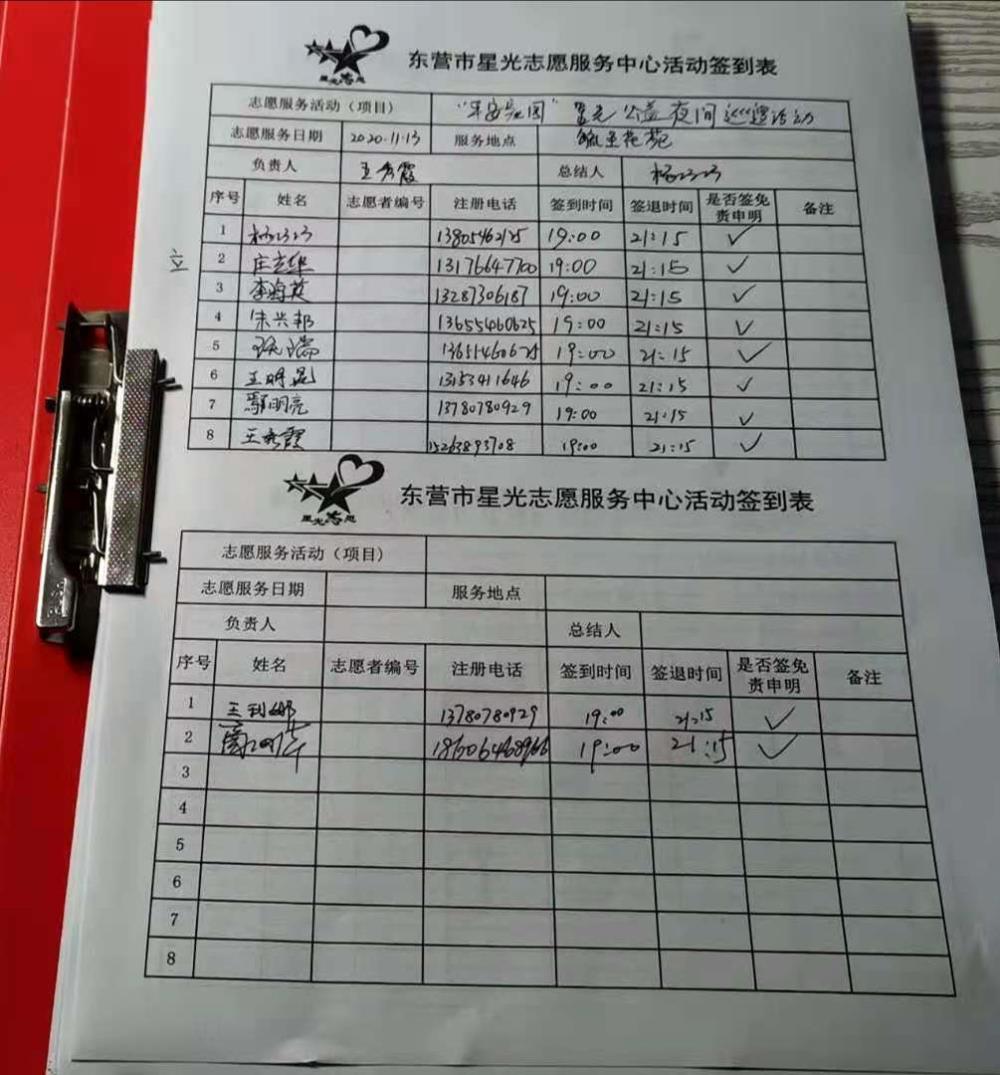 东营市星光志愿服务中心活动签到表
志愿服务活动（项目） "平安校园" 星光公益夜间巡逻活动
志愿服务日期 2020.11.13 服务地点
负责人 王秀霞 总结人
序号 姓名 志愿者编号 注册电话 签到时间 签退时间 是否签免责申明 备注
1 19:00 21:15 ✓
立
2 庄立华 13176647700 19:00 21:15 ✓
3 李海英 13287306187 19:00 21:15 ✓
4 宋兴邦 13655460625 19:00 21:15 ✓
5 19:00 21:15 ✓
6 王明昆 13153411646 19:00 21:15 ✓
7 鄢明亮 13780780929 19:00 21:15 ✓
8 王秀霞 15263893708 19:00 21:15 ✓
星光志愿
东营市星光志愿服务中心活动签到表
志愿服务活动（项目）
志愿服务日期 服务地点
负责人 总结人
序号 姓名 志愿者编号 注册电话 签到时间 签退时间 是否签免责申明 备注
1 王利娜 13780780929 19:00 21:15 ✓
2 18606468966 19:00 21:15 ✓
3
4
5
6
7
8